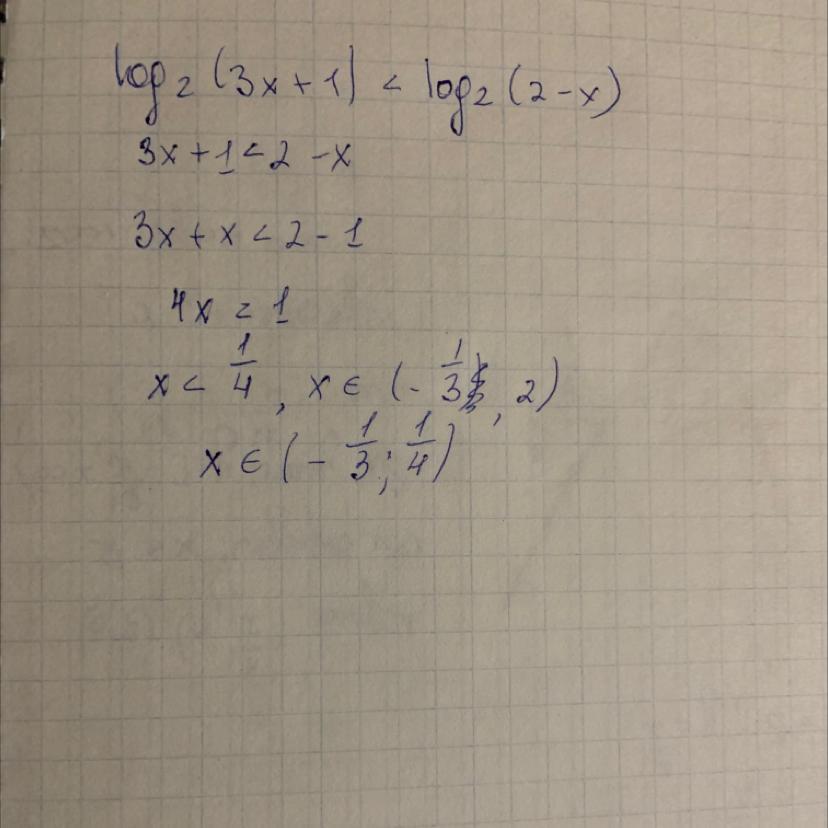 log₂(3x+1) < log₂(2-x)
3x+1<2-x
3x+x<2-1
4x<1
x < 1/4, x ∈ (-1/3, 2)
x ∈ (-1/3; 1/4)